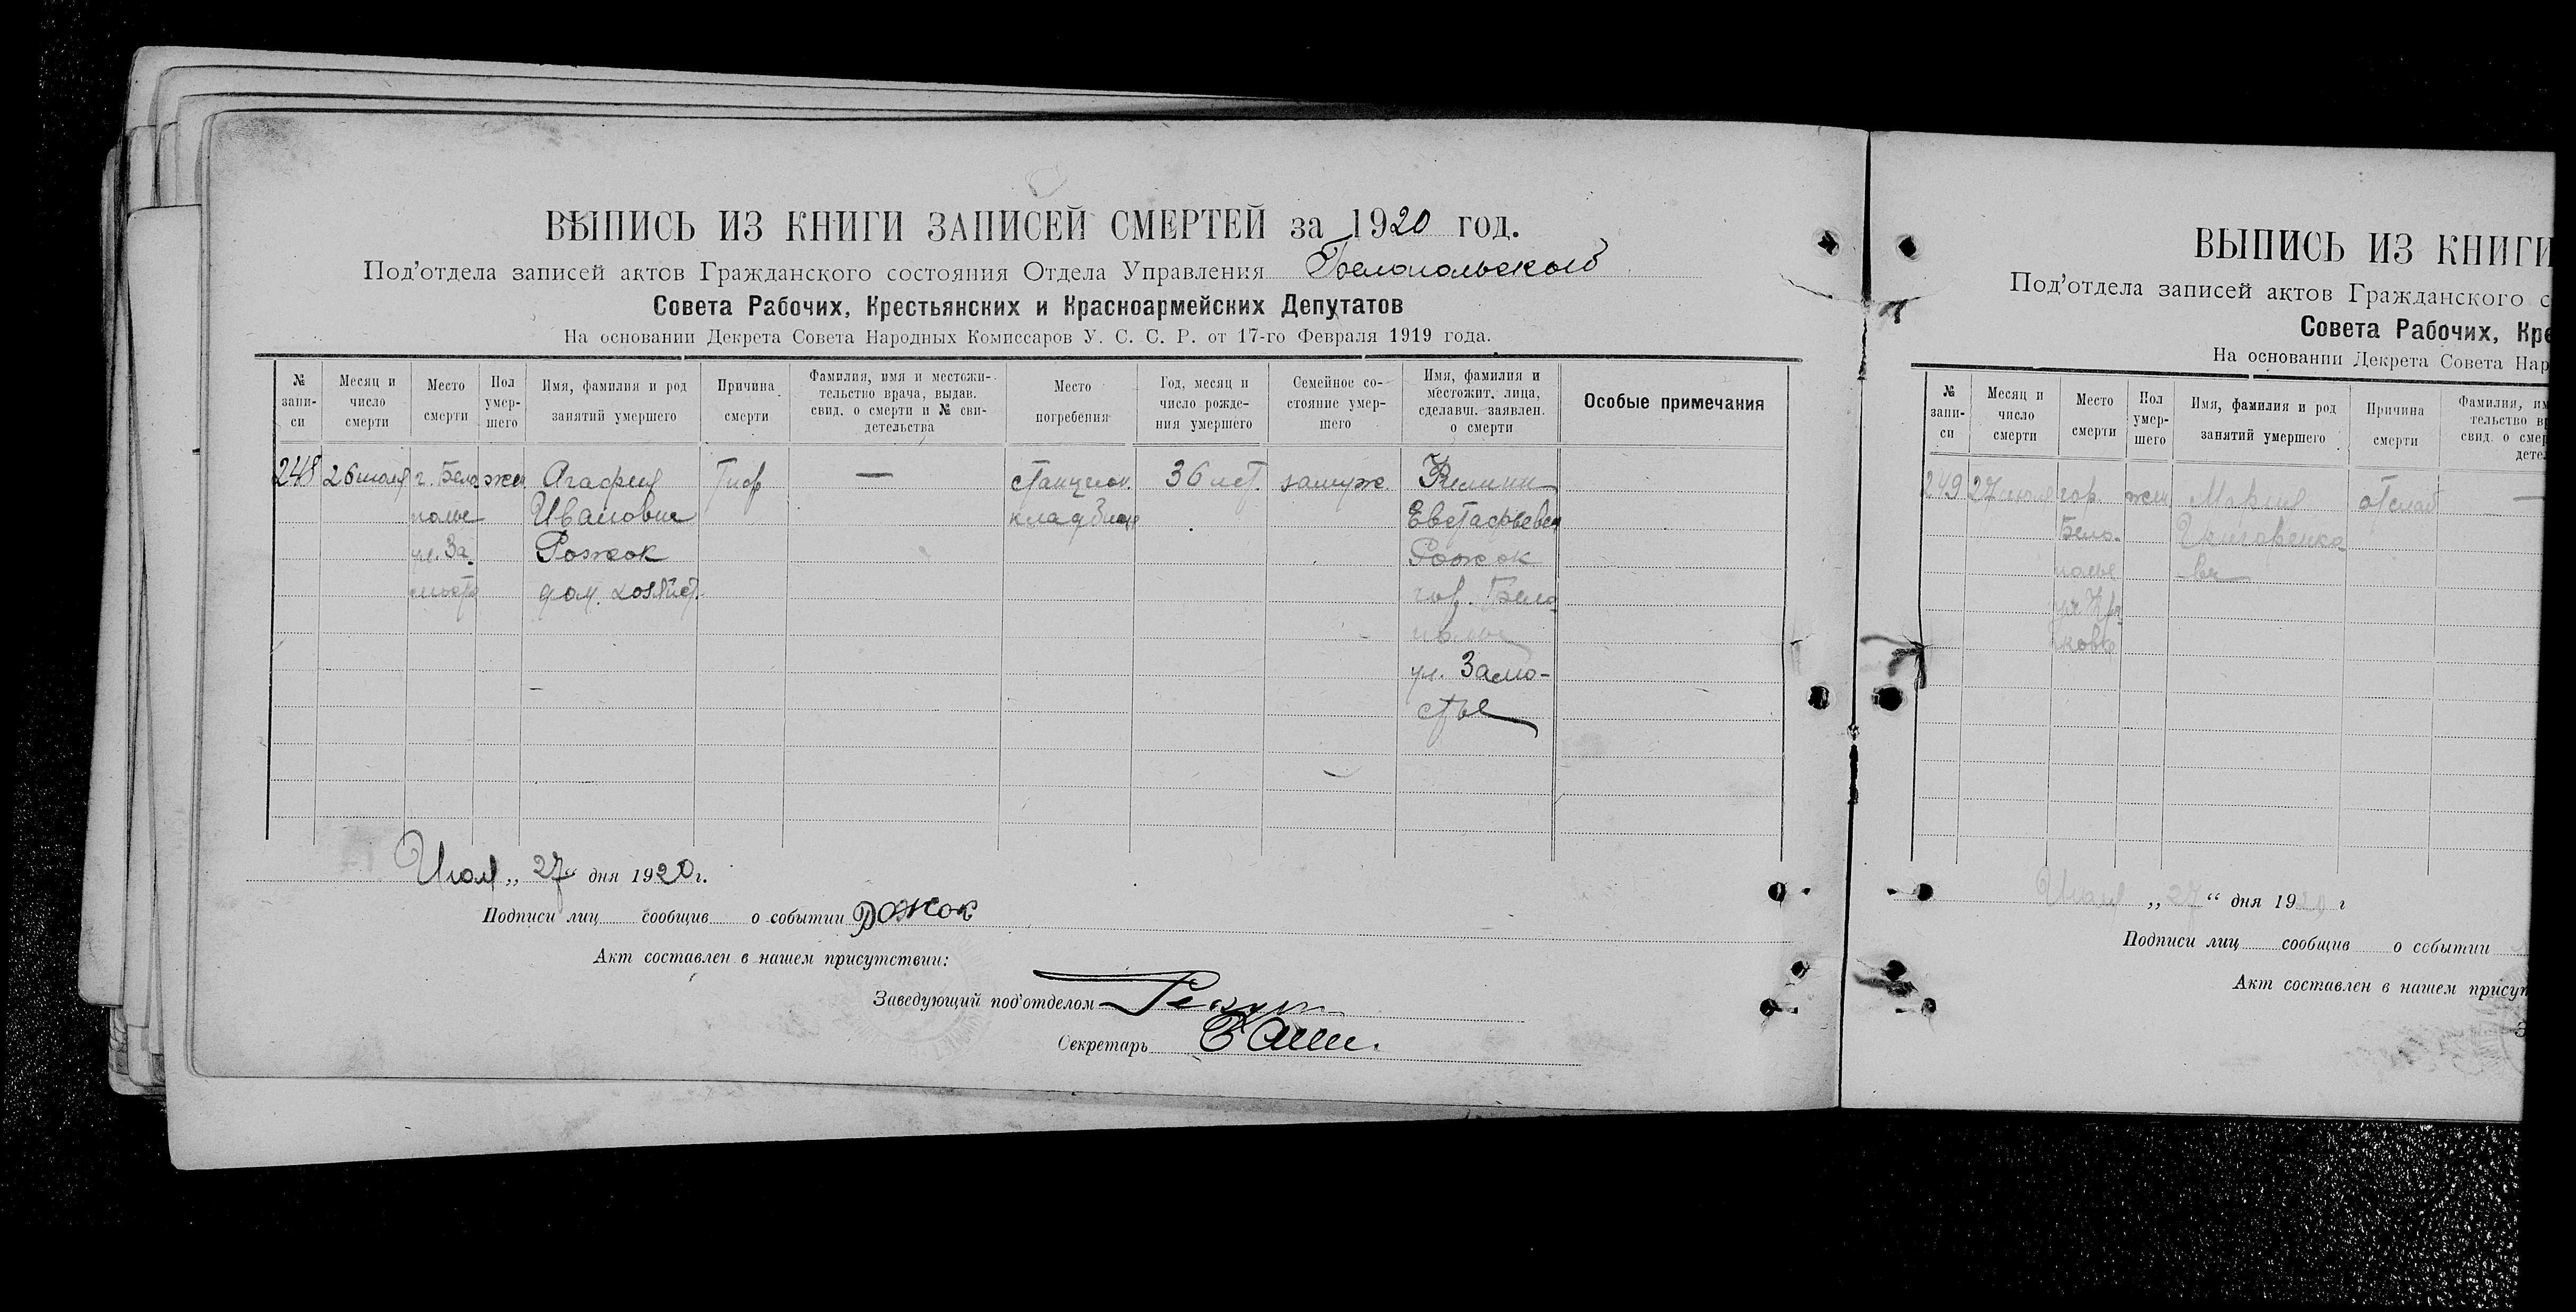 ВЫПИСЬ ИЗ КНИГИ ЗАПИСЕЙ СМЕРТЕЙ за 1920 год.
Под'отдела записей актов Гражданского состояния Отдела Управления Белопольского
Совета Рабочих, Крестьянских и Красноармейских Депутатов
На основании Декрета Совета Народных Комиссаров У. С. С. Р. от 17-го Февраля 1919 года.
№ запи-си
Месяц и число смерти
Место смерти
Пол умер-шего
Имя, фамилия и род занятий умершего
Причина смерти
Фамилия, имя и местожи-тельство врача, выдав. свид. о смерти и № сви-детельства
Место погребения
Год, месяц и число рожде-ния умершего
Семейное со-стояние умер-шего
Имя, фамилия и местожит. лица, сделавш. заявлен. о смерти
Особые примечания
248 26 июля г. Бело жен. Агафия Тиф — станцион. 36 лет. замуж.
полье Ивановна кладбище Евстафьевич
ул. За Рожок Рожок
мость дом. хозяйст. гор. Бело
полье
ул. Замо-
стье
Июля „ 27 " дня 1920 г.
Подписи лиц сообщив о событии Рожок
Акт составлен в нашем присутствии:
Заведующий под'отделом
Секретарь
ВЫПИСЬ ИЗ КНИГИ
Под'отдела записей актов Гражданского с
Совета Рабочих, Кре
На основании Декрета Совета Нар
№ запи-си
Месяц и число смерти
Место смерти
Пол умер-шего
Имя, фамилия и род занятий умершего
Причина смерти
Фамилия, им
тельство вр
свид. о смер
дете
249 27 июля гор. жен Мария от слаб —
Бело-
полье
Июля „ 27 “ дня 1920 г
Подписи лиц сообщив о событии
Акт составлен в нашем присут